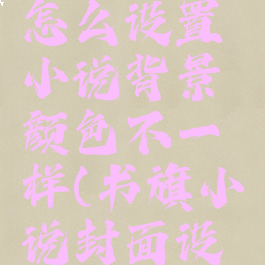 怎么设置
小说背景
颜色不一
样(书旗小
说封面设